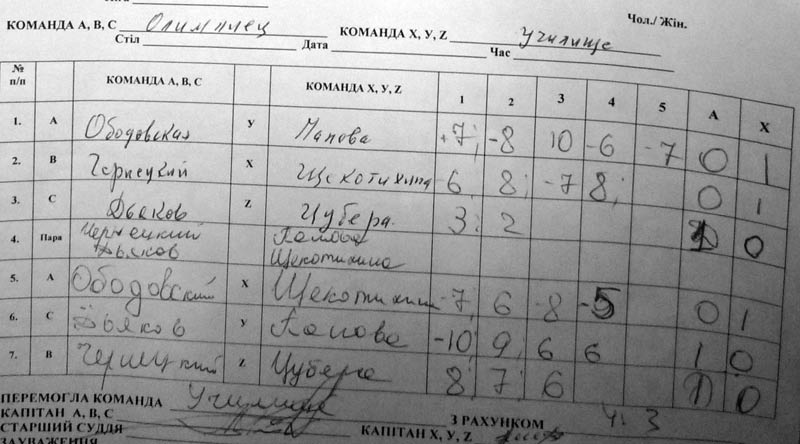 КОМАНДА А, В, С Олимпиец КОМАНДА Х, У, Z Училище Чол./ Жін.
Стіл Дата Час
№ п/п КОМАНДА А, В, С КОМАНДА Х, У, Z 1 2 3 4 5 А Х
1. А Ободовская У Папова +7; -8 10 -6 -7 0 1
2. В Чернецкий Х Щекотихина 6, 8; -7 8; 0 1
3. С Дьяков Z Цубера 3; 2 1 0
4. Пара Чернецкий Папова
Дьяков Щекотихина
5. А Ободовский Х Щекотихин -7, 6 -8 -5 0 1
6. С Дьяков У Папова -10, 9, 6 6 1 0
7. В Чернецкий Z Цубера 8; 7; 6 1 0
ПЕРЕМОГЛА КОМАНДА Училище З РАХУНКОМ 4:3
КАПІТАН А, В, С
СТАРШИЙ СУДДЯ КАПІТАН Х, У, Z
ЗАУВАЖЕННЯ